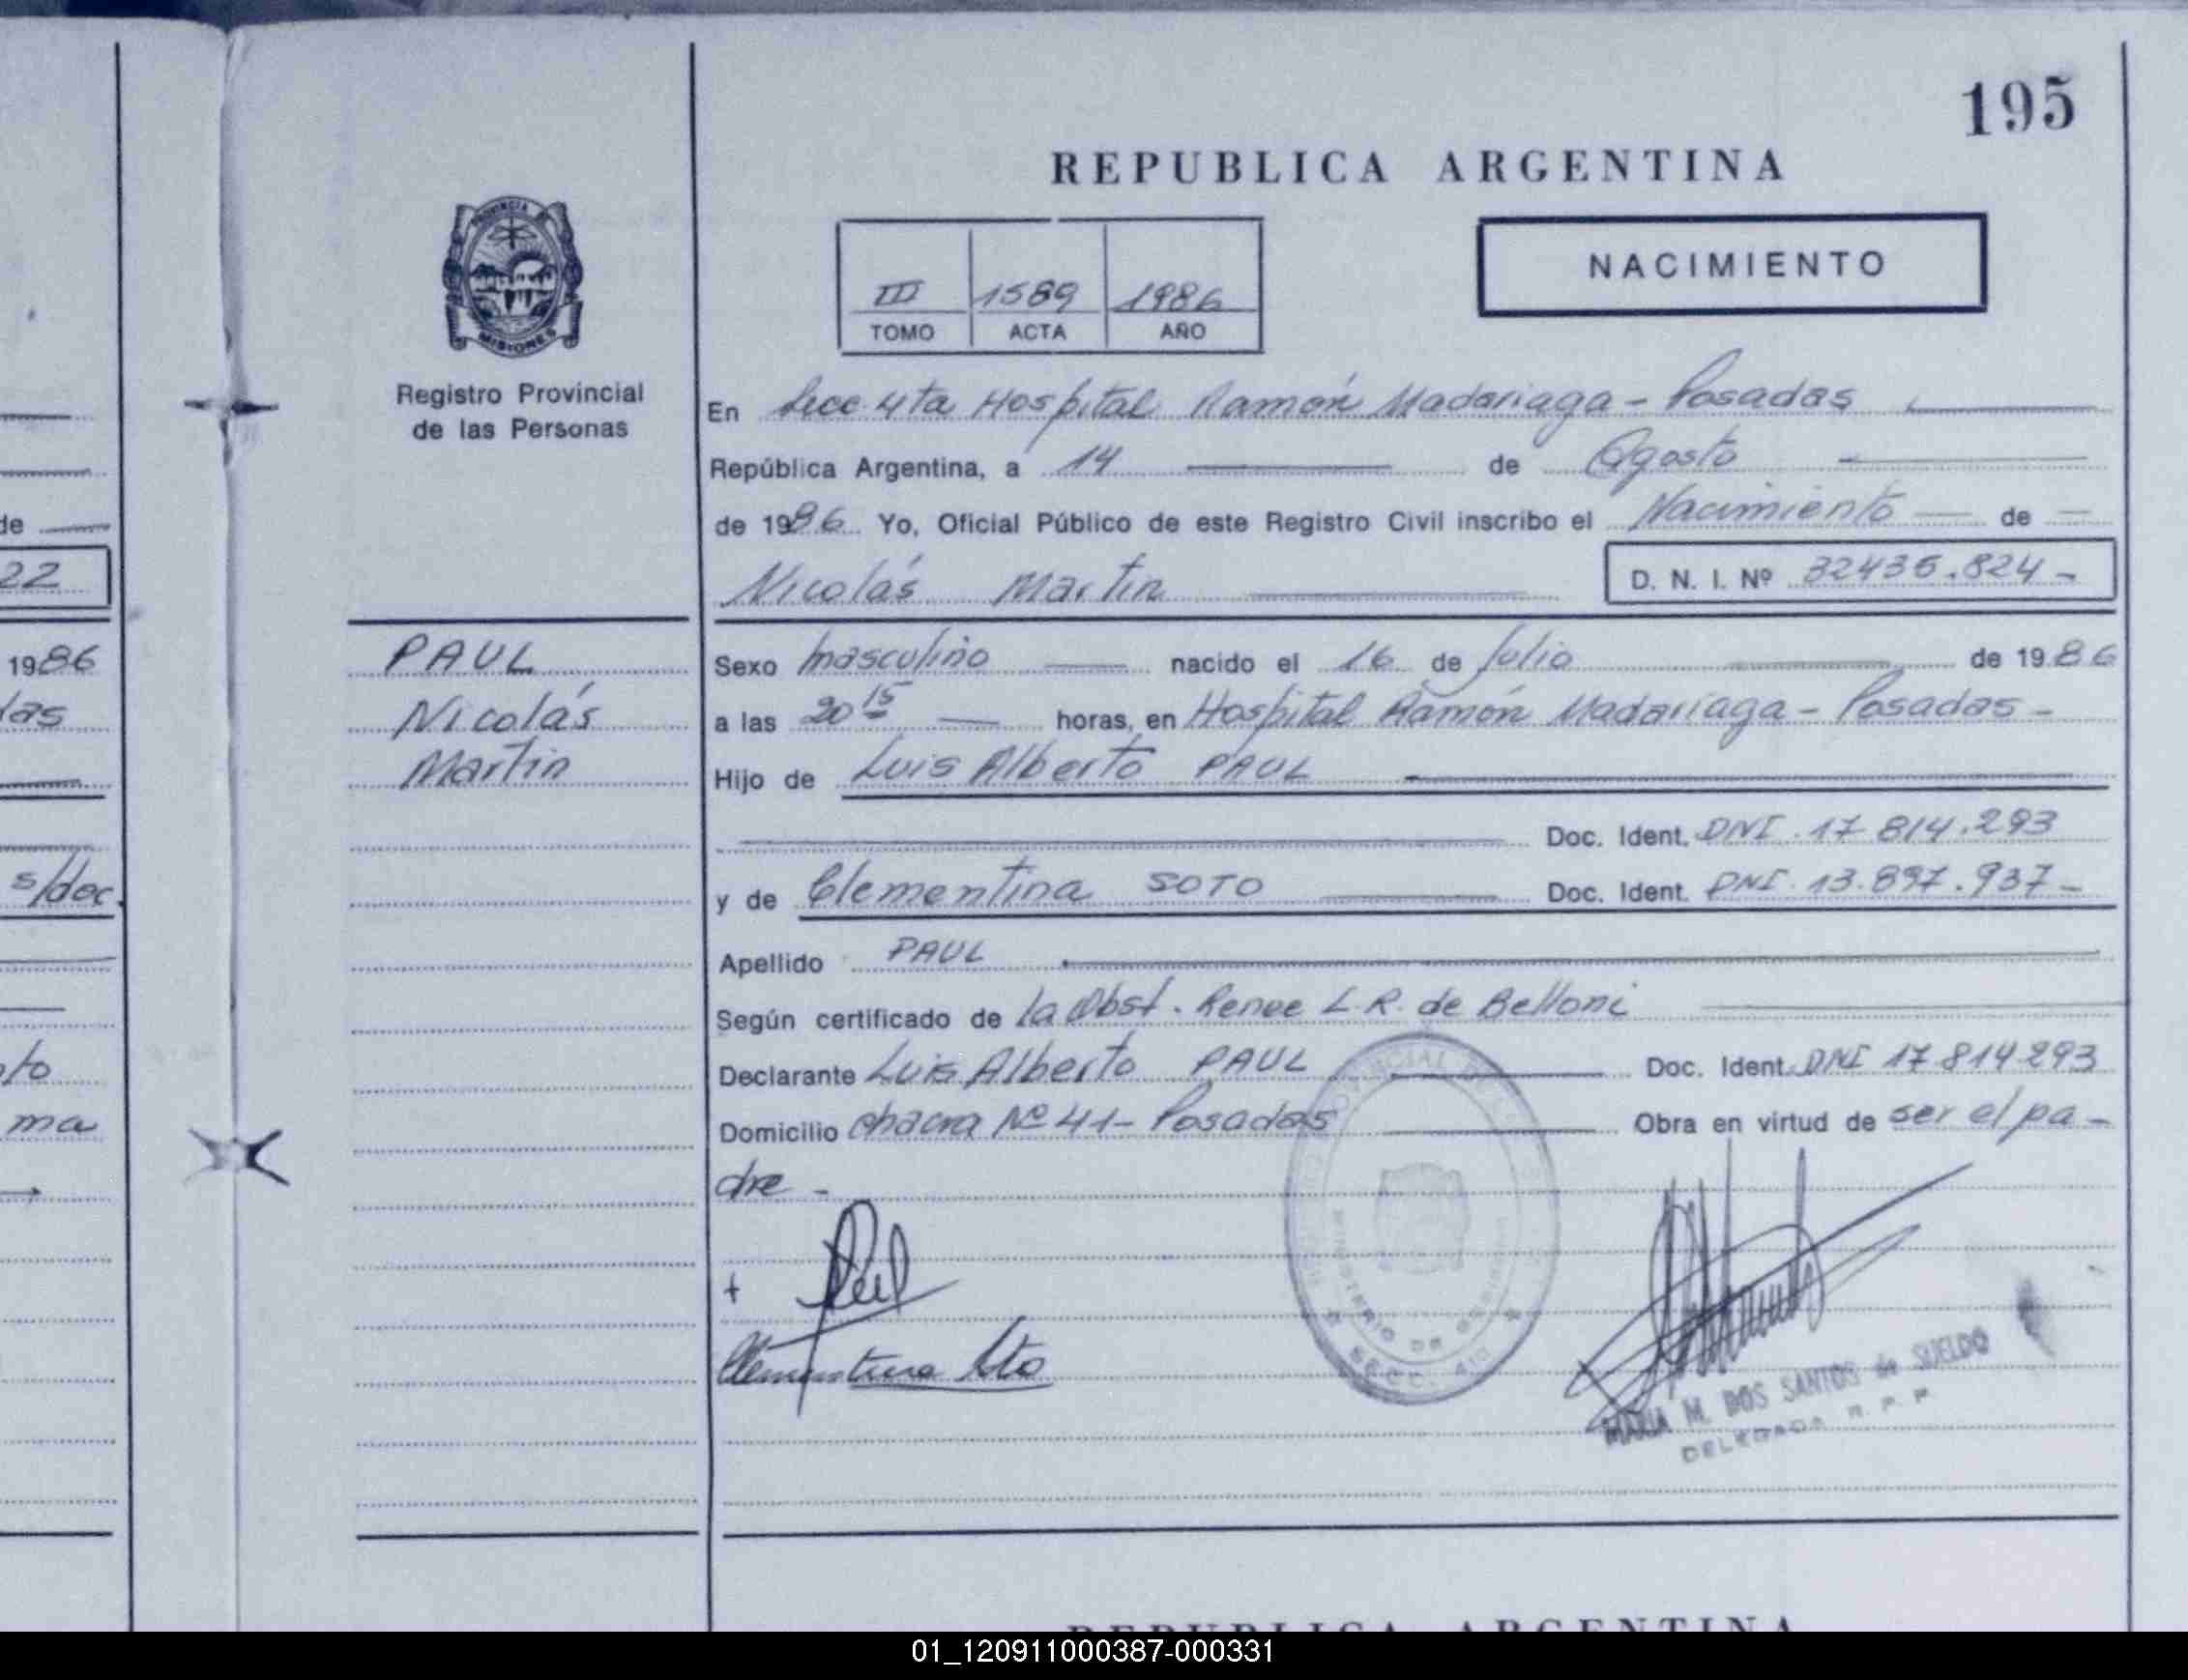 195
REPUBLICA ARGENTINA
PROVINCIA DE
MISIONES
Registro Provincial
de las Personas
III 1589 1986
TOMO ACTA AÑO
NACIMIENTO
En Secc. 4ta Hospital Ramón Madariaga - Posadas
República Argentina, a 14 de Agosto
de 1986 Yo, Oficial Público de este Registro Civil inscribo el Nacimiento de
Nicolás Martin
D. N. I. Nº 32436.824 -
PAUL
Nicolás
Martin
Sexo masculino nacido el 16 de Julio de 1986
a las 20 15 horas, en Hospital Ramón Madariaga - Posadas -
Hijo de Luis Alberto PAUL
Doc. Ident. DNI. 17 814.293
y de Clementina SOTO Doc. Ident. DNI. 13.897.937 -
Apellido PAUL
Según certificado de la Obst. Renee L. R. de Belloni
Declarante Luis Alberto PAUL Doc. Ident. DNI 17 814 293
Domicilio chacra Nº 41 - Posadas Obra en virtud de ser el pa -
dre -
Clementina Soto
MINISTERIO DE GOBIERNO
SECC. 4ta
MARIA M. DOS SANTOS de SUELDO
DELEGADA R. P. P.
de
22
1986
das
s/doc.
to
ma
REPUBLICA ARGENTINA
01_120911000387-000331